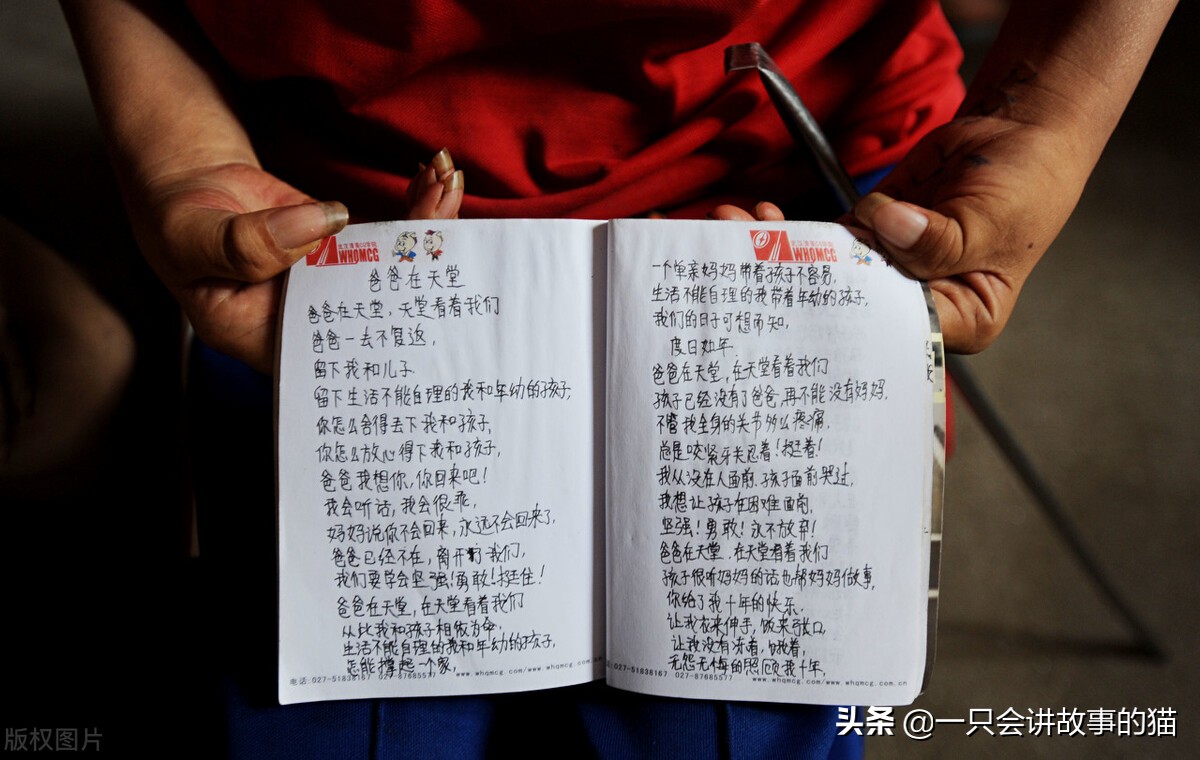 WHQMCG
爸爸在天堂
爸爸在天堂,天堂看着我们
爸爸一去不复返,
留下我和儿子
留下生活不能自理的我和年幼的孩子,
你怎么舍得丢下我和孩子,
你怎么放心得下我和孩子,
爸爸我想你,你回来吧!
我会听话,我会很乖,
妈妈说你不会回来,永远不会回来了,
爸爸已经不在,离开了我们,
我们要学会坚强!勇敢!挺住!
爸爸在天堂,在天堂看着我们
从此我和孩子相依为命,
生活不能自理的我和年幼的孩子,
怎能撑起一个家,
电话:027-51838167 027-87685577 www.whqmcg.com/www.whqmcg.com
WHQMCG
一个单亲妈妈带着孩子不容易,
生活不能自理的我带着年幼的孩子,
我们的日子可想而知,
度日如年
爸爸在天堂,在天堂看着我们
孩子已经没有了爸爸,再不能没有妈妈,
不管我全身的关节多么疼痛,
总是咬紧牙关忍着!挺着!
我从没在人面前.孩子面前哭过,
我想让孩子在困难面前,
坚强!勇敢!永不放弃!
爸爸在天堂.在天堂看着我们
孩子很听妈妈的话也帮妈妈做事,
你给了我十年的快乐.
让我衣来伸手,饭来张口,
让我没有冻着,饿着,
无怨无悔的照顾我十年,
027-51838167 027-87685577 www.whqmcg.com/www.whqmcg.com.cn
版权图片
头条 @一只会讲故事的猫